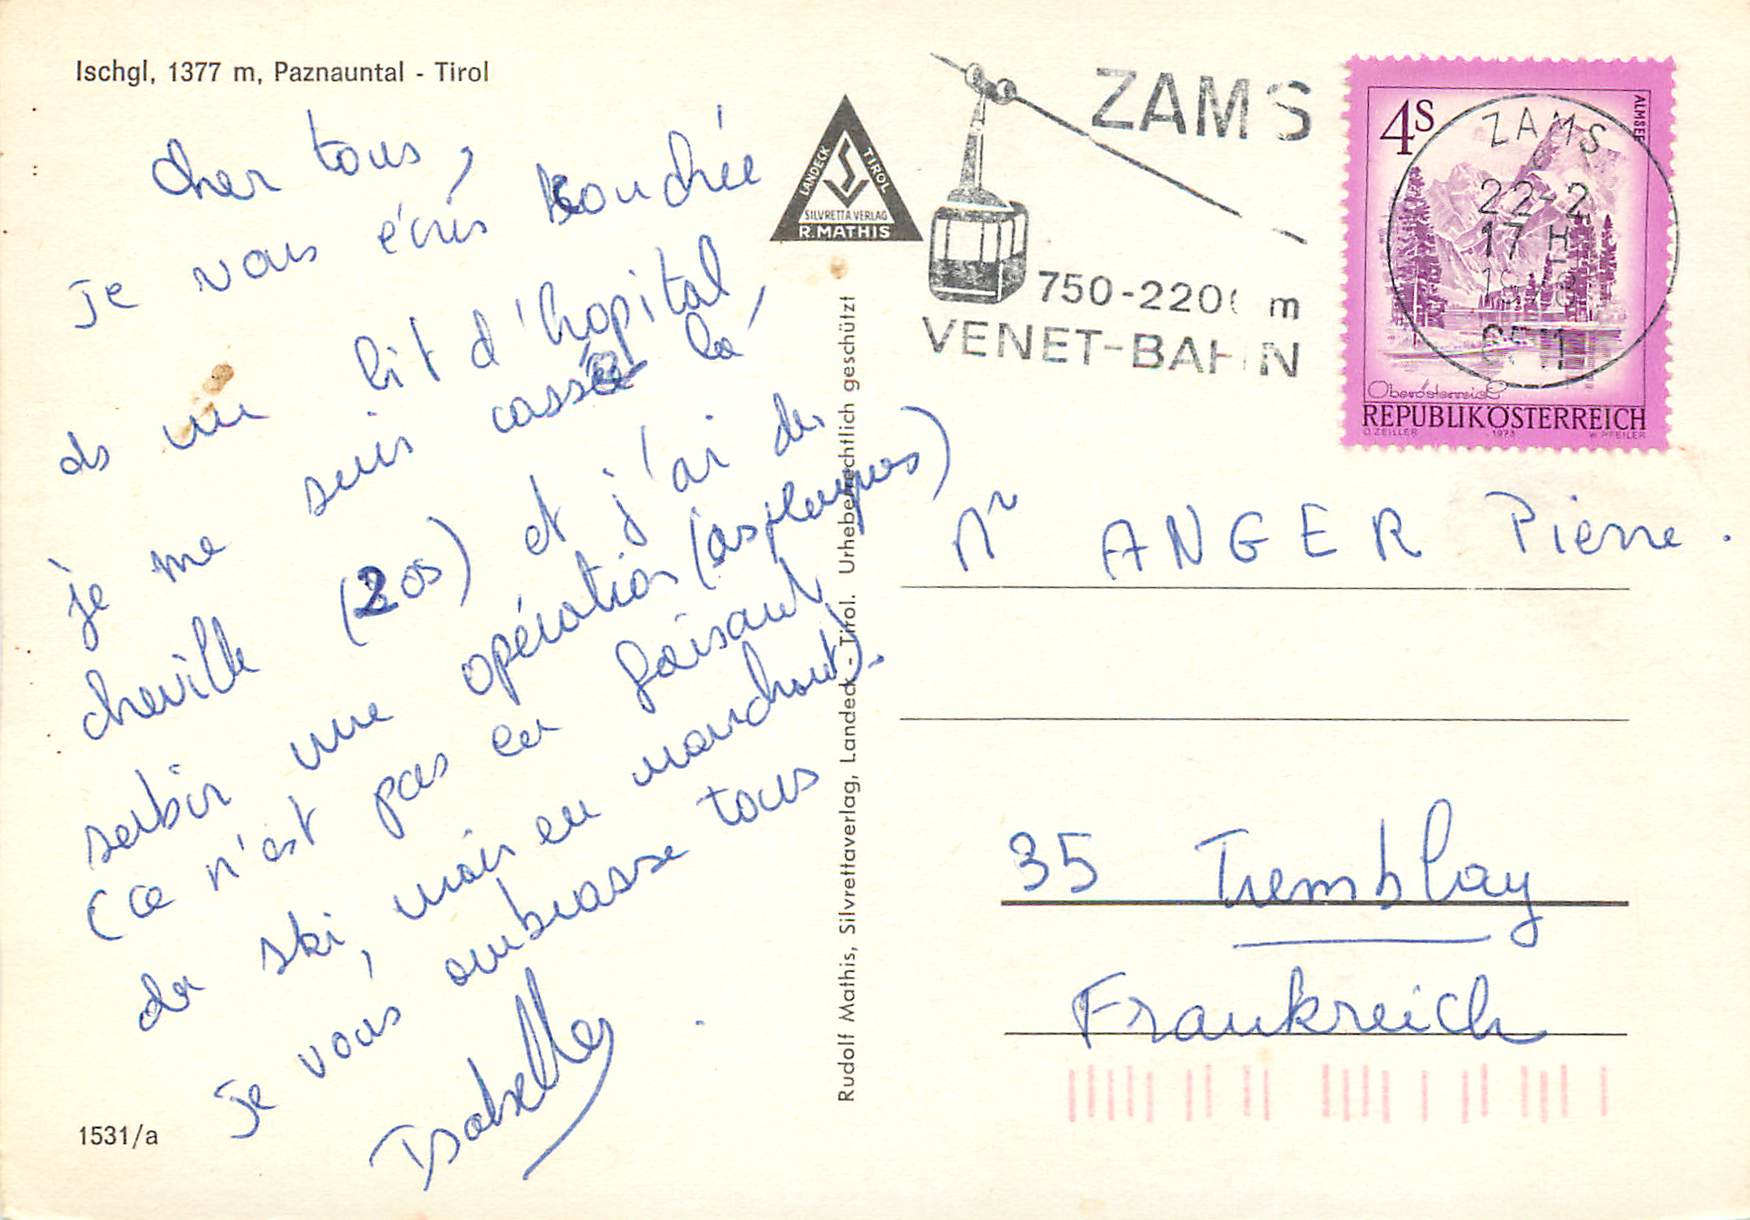 Ischgl, 1377 m, Paznauntal - Tirol
Cher tous,
je vous écris couchée
ds un lit d'hopital,
je me suis cassée la
cheville (2 os) et j'ai du
subir une opération (as plaques)
(ce n'est pas en faisant
du ski, mais en marchant).
je vous embrasse tous
Isabelle
1531/a
LANDECK TIROL
SILVRETTA VERLAG
R. MATHIS
Rudolf Mathis, Silvrettaverlag, Landeck - Tirol. Urheberrechtlich geschützt
ZAMS
750-220 m
VENET-BAHN
4S
ALMSEE
ZAMS
22-2
17 H
Oberösterreich
REPUBLIK ÖSTERREICH
O. ZEILLER 1973 W. PFEILER
Mr ANGER Pierre.
35 Tremblay
Frankreich